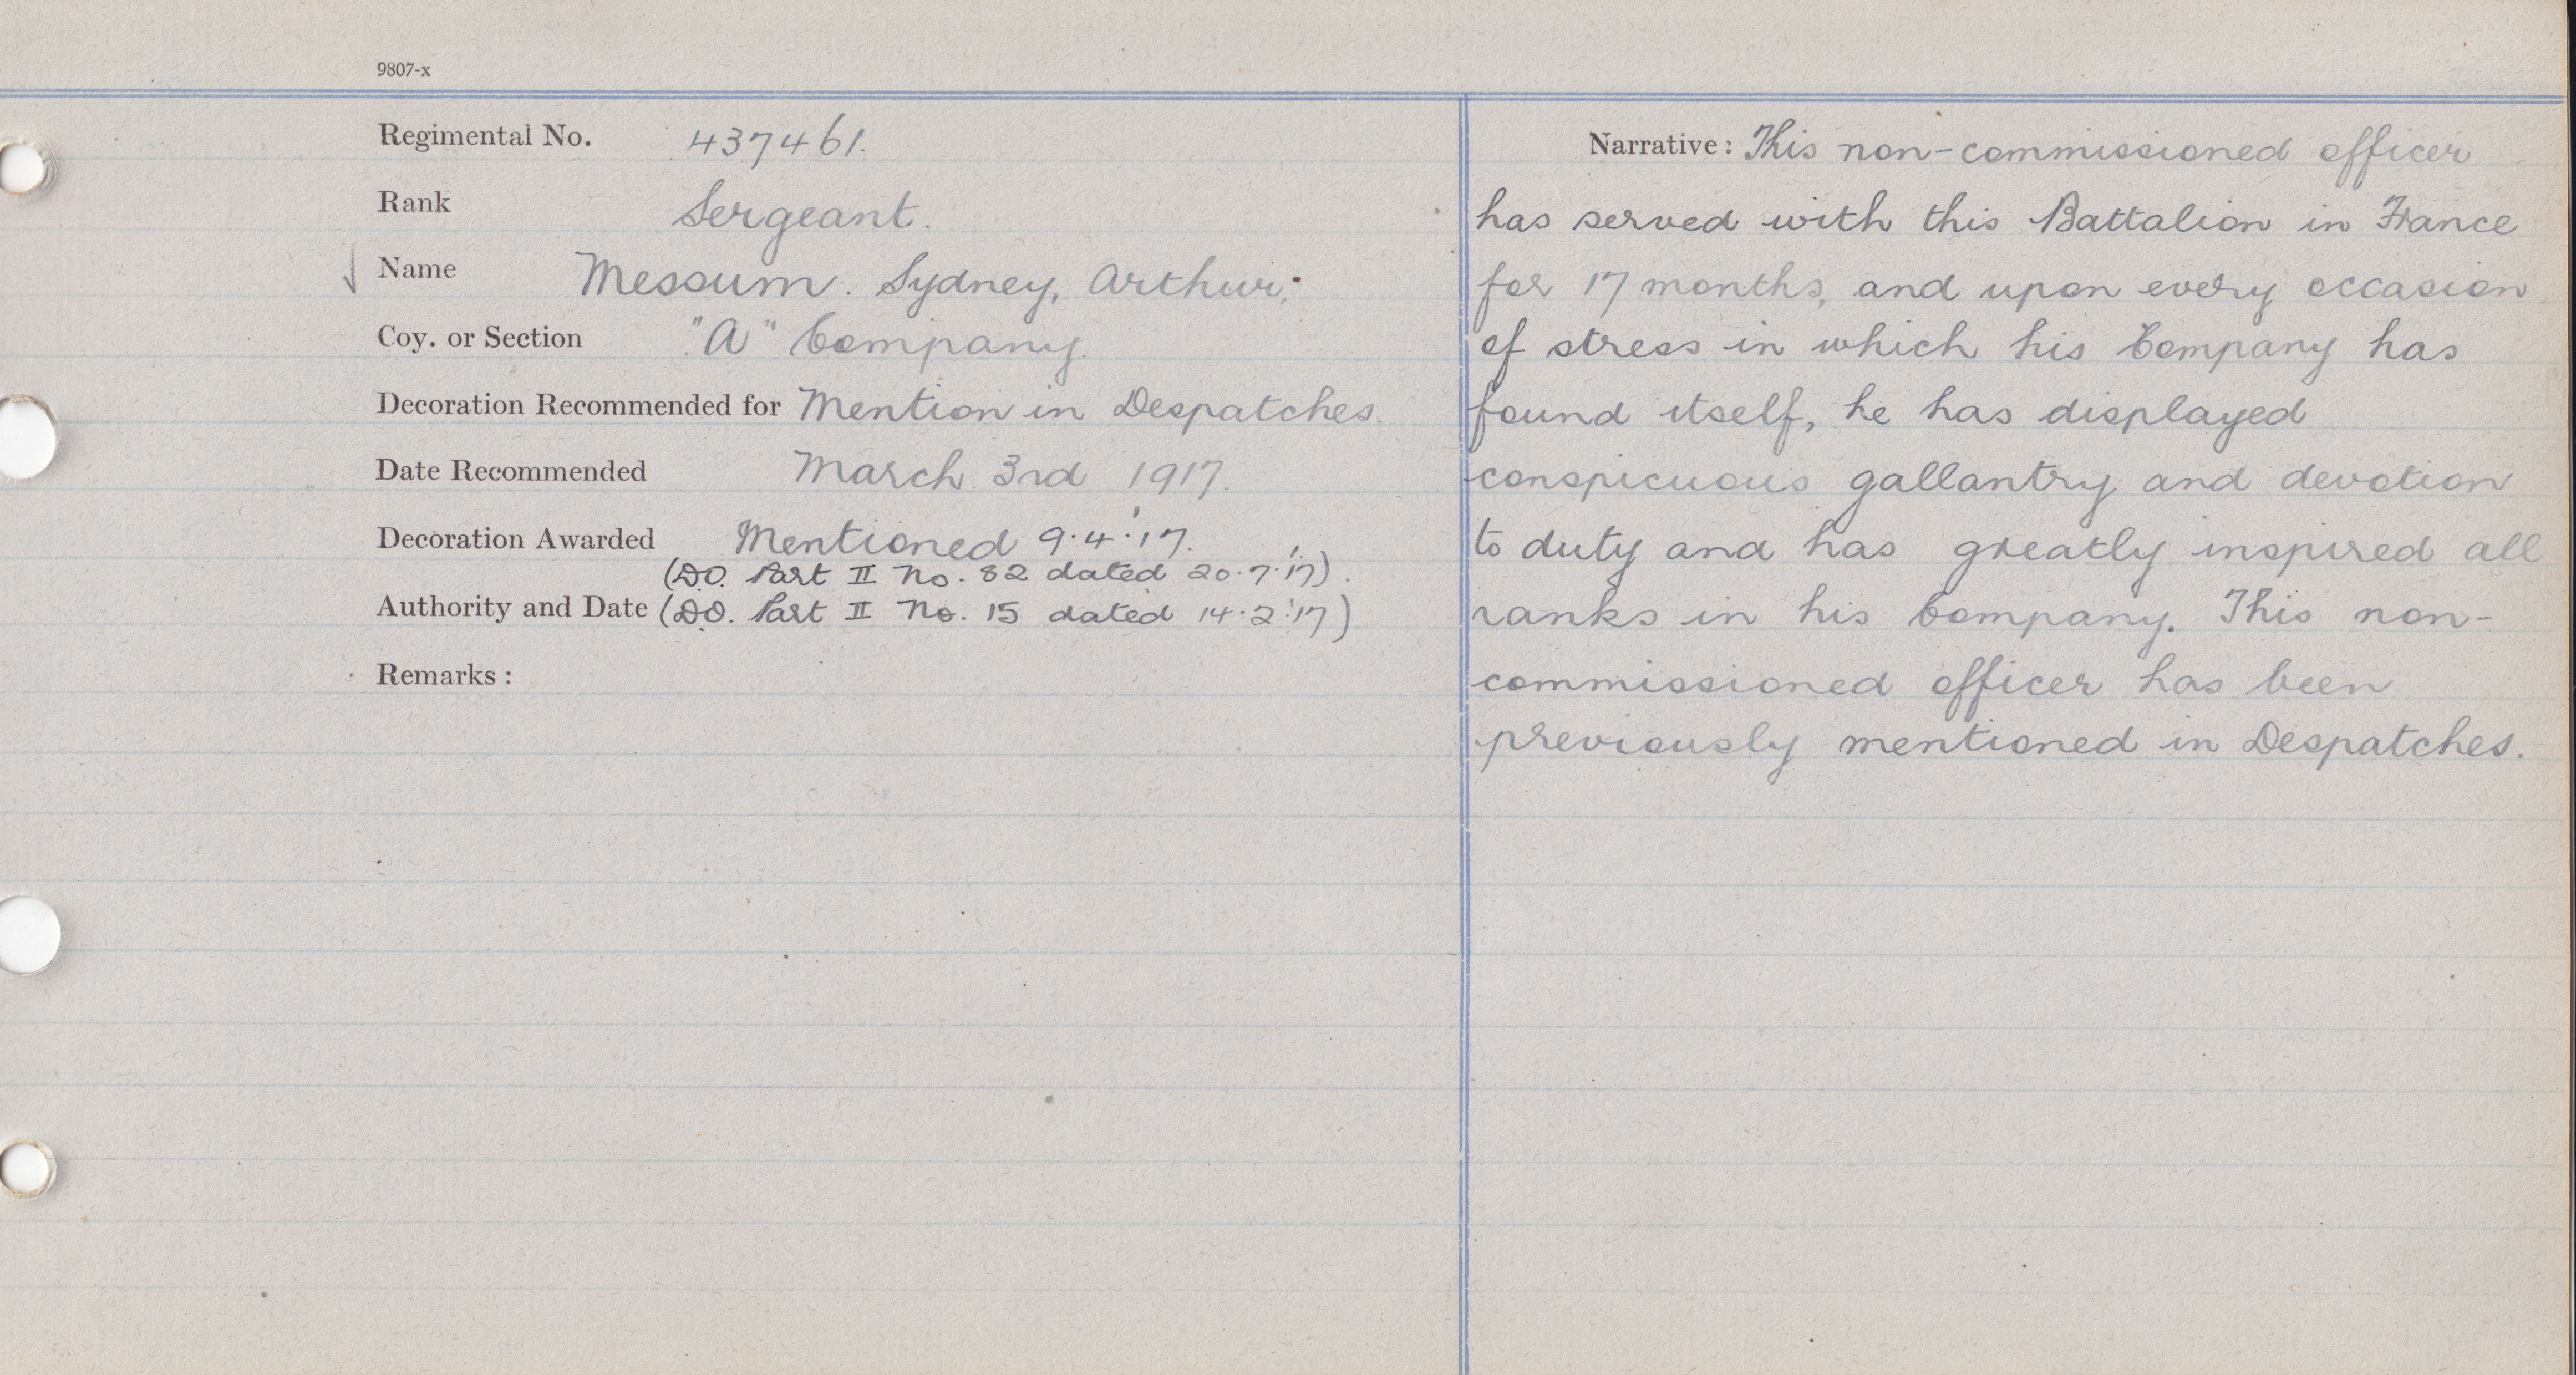 9807-x
Regimental No. 437461.
Rank Sergeant.
Name Messum. Sydney, Arthur,
Coy. or Section "A" Company.
Decoration Recommended for Mention in Despatches.
Date Recommended March 3rd 1917.
Decoration Awarded Mentioned 9.4.'17.
(D.O. Part II No. 82 dated 20.7.'17).
Authority and Date (D.O. Part II No. 15 dated 14.2.'17)
Remarks :
Narrative : This non-commissioned officer
has served with this Battalion in France
for 17 months, and upon every occasion
of stress in which his Company has
found itself, he has displayed
conspicuous gallantry and devotion
to duty and has greatly inspired all
ranks in his Company. This non-
commissioned officer has been
previously mentioned in Despatches.